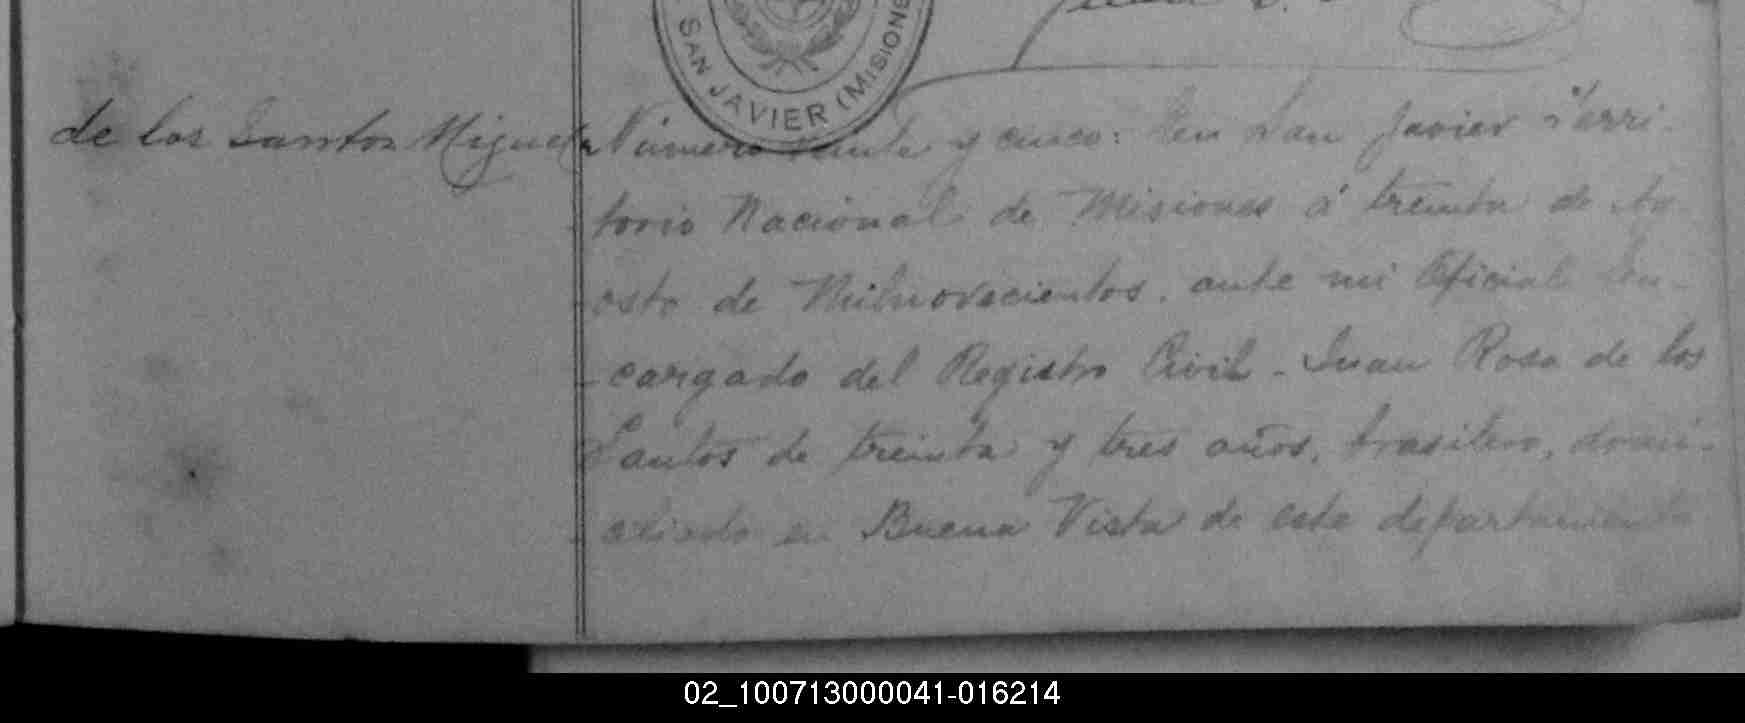 SAN JAVIER (MISIONE
de los Santos Miguel
Número veinte y cinco: En San Javier Terri-
torio Nacional de Misiones á treinta de Ag
osto de Milnovecientos. ante mi Oficial En-
-cargado del Registro Civil - Juan Rosa de los
Santos de treinta y tres años, brasilero, domi-
-ciliado en Buena Vista de este departamento
02_100713000041-016214